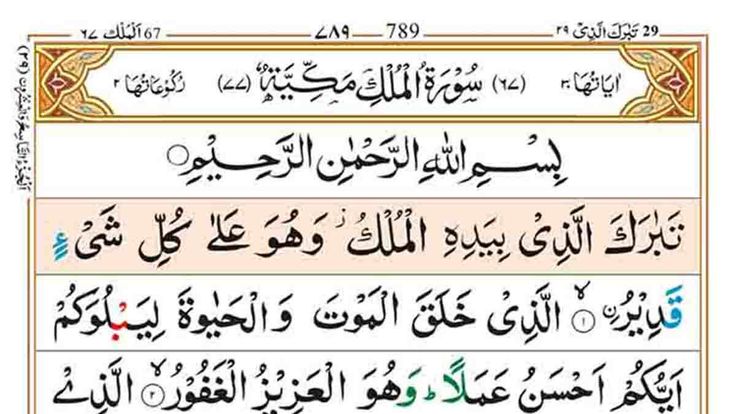 29 تَبٰرَكَ الَّذِىْ ٢٩ 789 ٧٨٩ 67 اَلْمُلْك ٦٧
اٰيَاتُهَا ٣٠ (٦٧) سُوْرَةُ الْمُلْكِ مَكِّيَّةٌ (٧٧) رُكُوْعَاتُهَا ٢
بِسْمِ اللّٰهِ الرَّحْمٰنِ الرَّحِيْمِ
تَبٰرَكَ الَّذِىْ بِيَدِهِ الْمُلْكُ ز وَهُوَ عَلٰى كُلِّ شَىْءٍ
قَدِيْرُ ۙ ۨ ۝١ الَّذِىْ خَلَقَ الْمَوْتَ وَالْحَيٰوةَ لِيَبْلُوَكُمْ
اَيُّكُمْ اَحْسَنُ عَمَلًا ؕ وَهُوَ الْعَزِيْزُ الْغَفُوْرُ ۙ ۝٢ الَّذِىْ